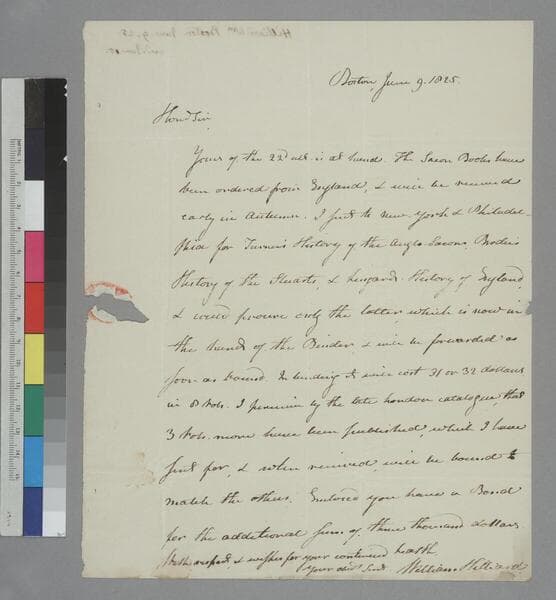 Boston, June 9. 1825.
Hond Sir,
Yours of the 22d ult. is at hand. The Saxon Books have
been ordered from England, & will be received
early in Autumn. I sent to New York & Philadel-
phia for Turner's History of the Anglo Saxons, Brodie's
History of the Stuarts, & Lingard's History of England,
& could procure only the latter, which is now in
the hands of the Binder & will be forwarded as
soon as bound. In binding it will cost 31 or 32 dollars
in 8 Vols. I perceive by the late London catalogue, that
3 Vols. more have been published, which I have
sent for, & when received, will be bound to
match the others. Enclosed you have a Bond
for the additional sum of three thousand dollars.
With respect & wishes for your continued health
Your obt Servt. William Hilliard